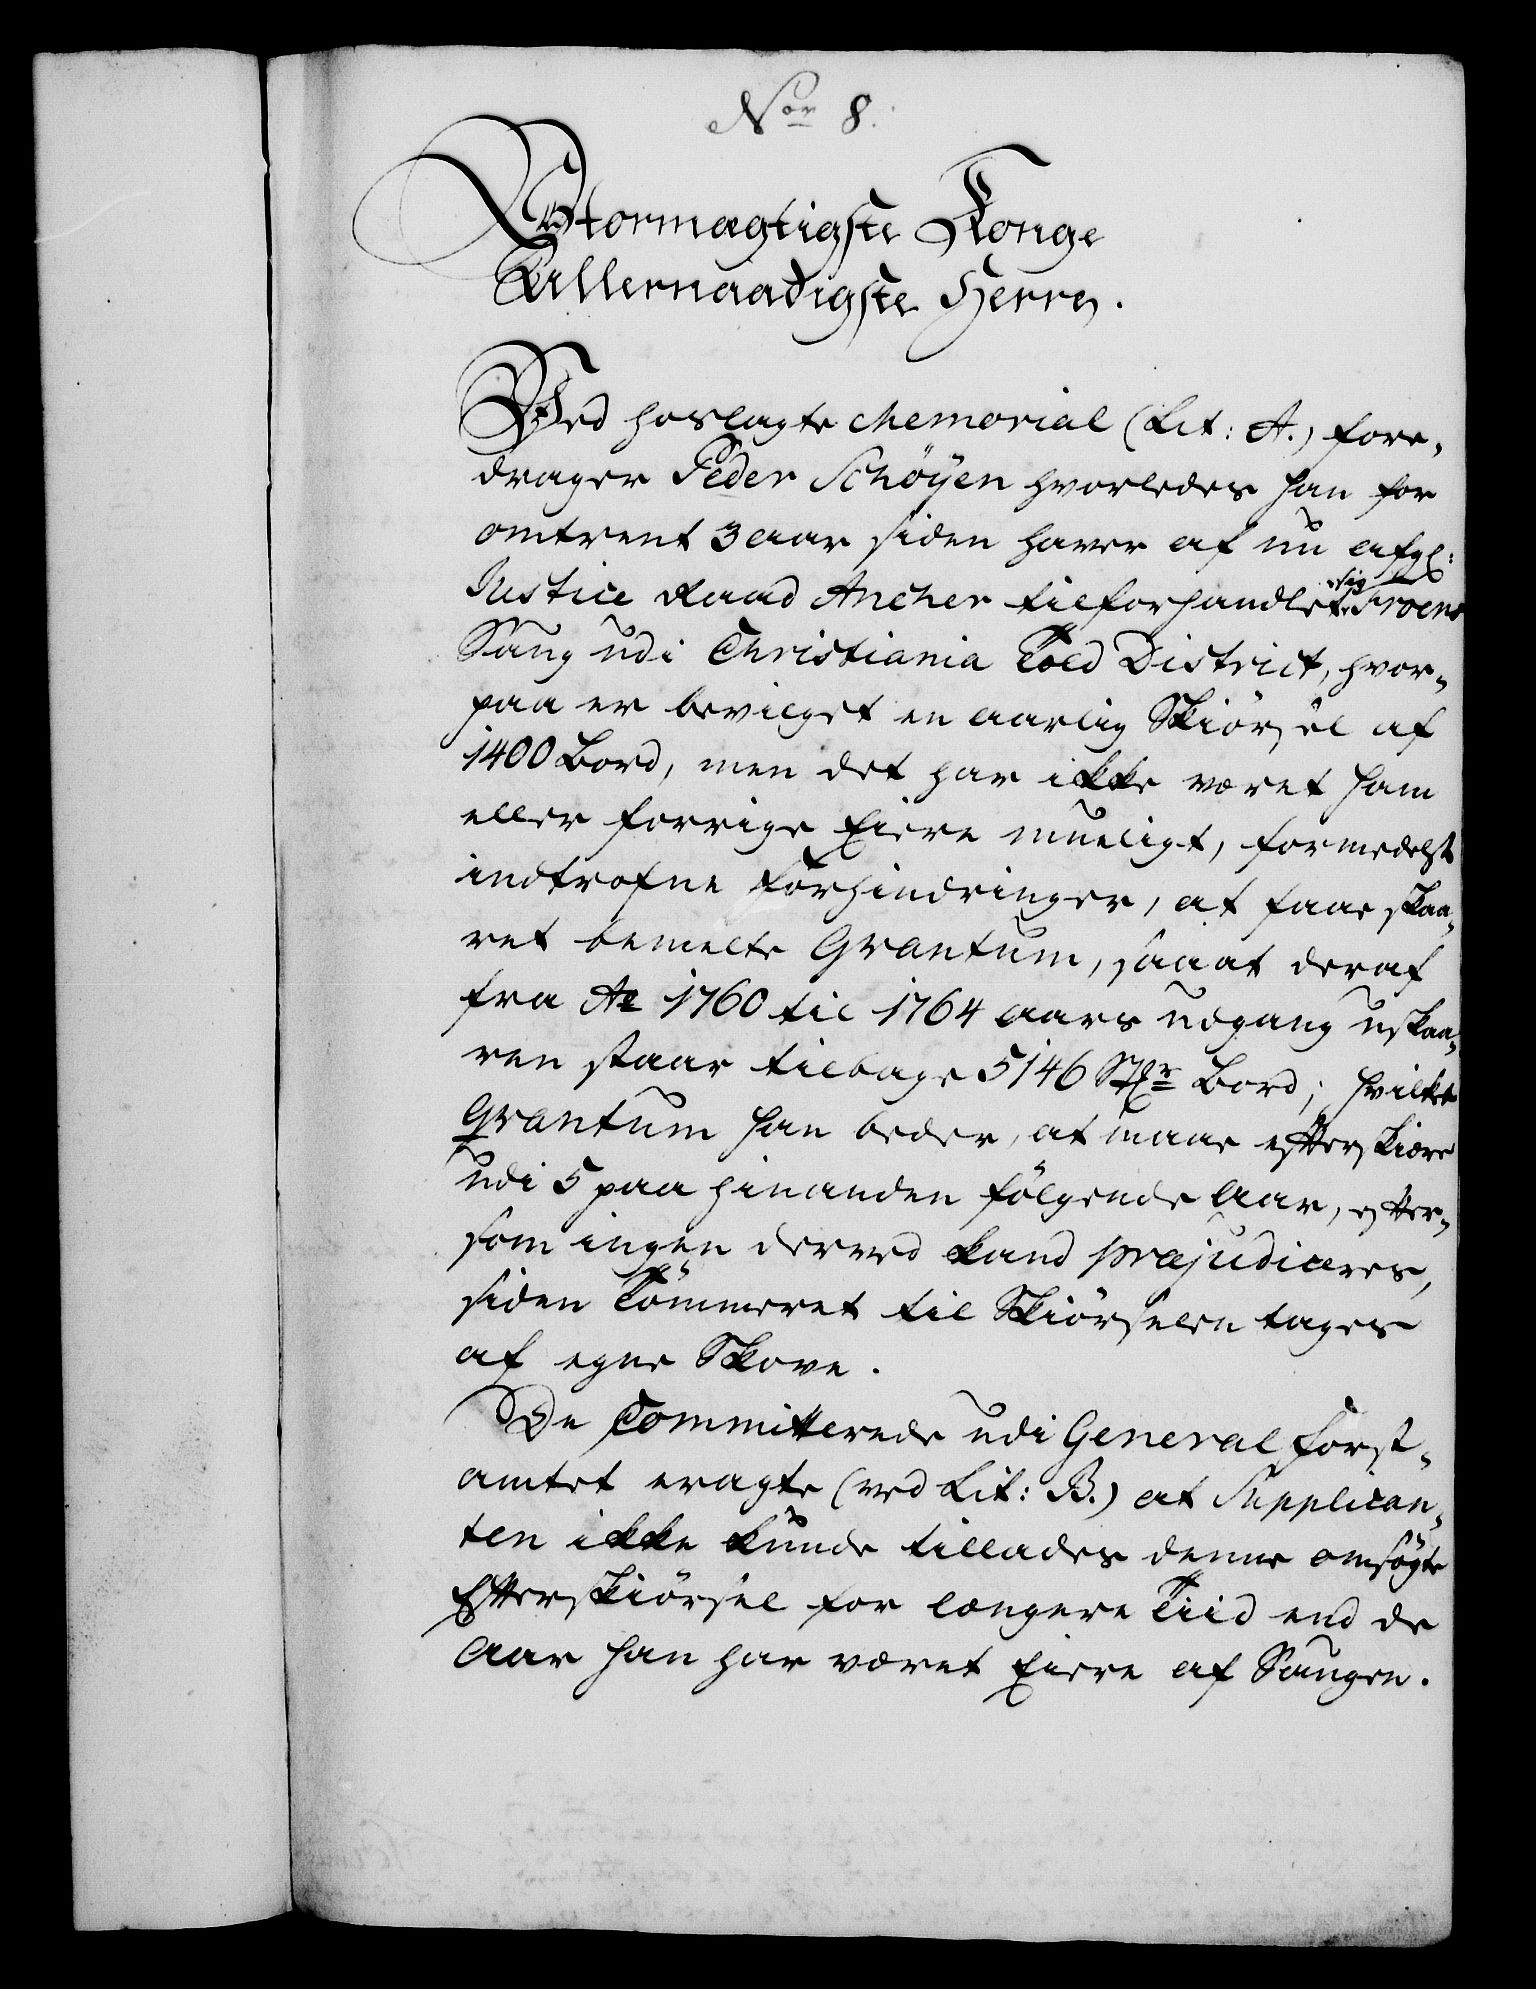 Nor 8.
Stormægtigste Konge
Allernaadigste Herre.
Ved hoslagte Memorial (Lit: A.) fore-
drager Peder Schöyen hvorledes han for
omtrent 3 aar siden haver af nu afgl:
Justice Raad Ancher tilforhandlet sig Froens
Saug udi Christiania Told District, hvor-
paa er bevilget en aarlig Skiörsel af
1400 Bord, men det har ikke været ham
eller forrige Eiere mueligt, formedelst
indtrofne Forhindringer, at faae skaa-
ret bemelte Qvantum, saa at deraf
fra Ao 1760 til 1764 aars udgang uskaa-
ren staar tilbage 5146 Stkr Bord; hvilket
Qvantum han beder, at maae efterskiære
udi 5 paa hinanden fölgende Aar, efter-
som ingen derved kand præjudiceres,
siden Tömmeret til Skiörselen tages
af egne Skove.
De Committerede udi General Forst-
amtet eragte (ved Lit: B.) at Supplican-
ten ikke kunde tillades denne omsögte
Efterskiörsel for længere Tiid end de
Aar han har været Eiere af Saugen.